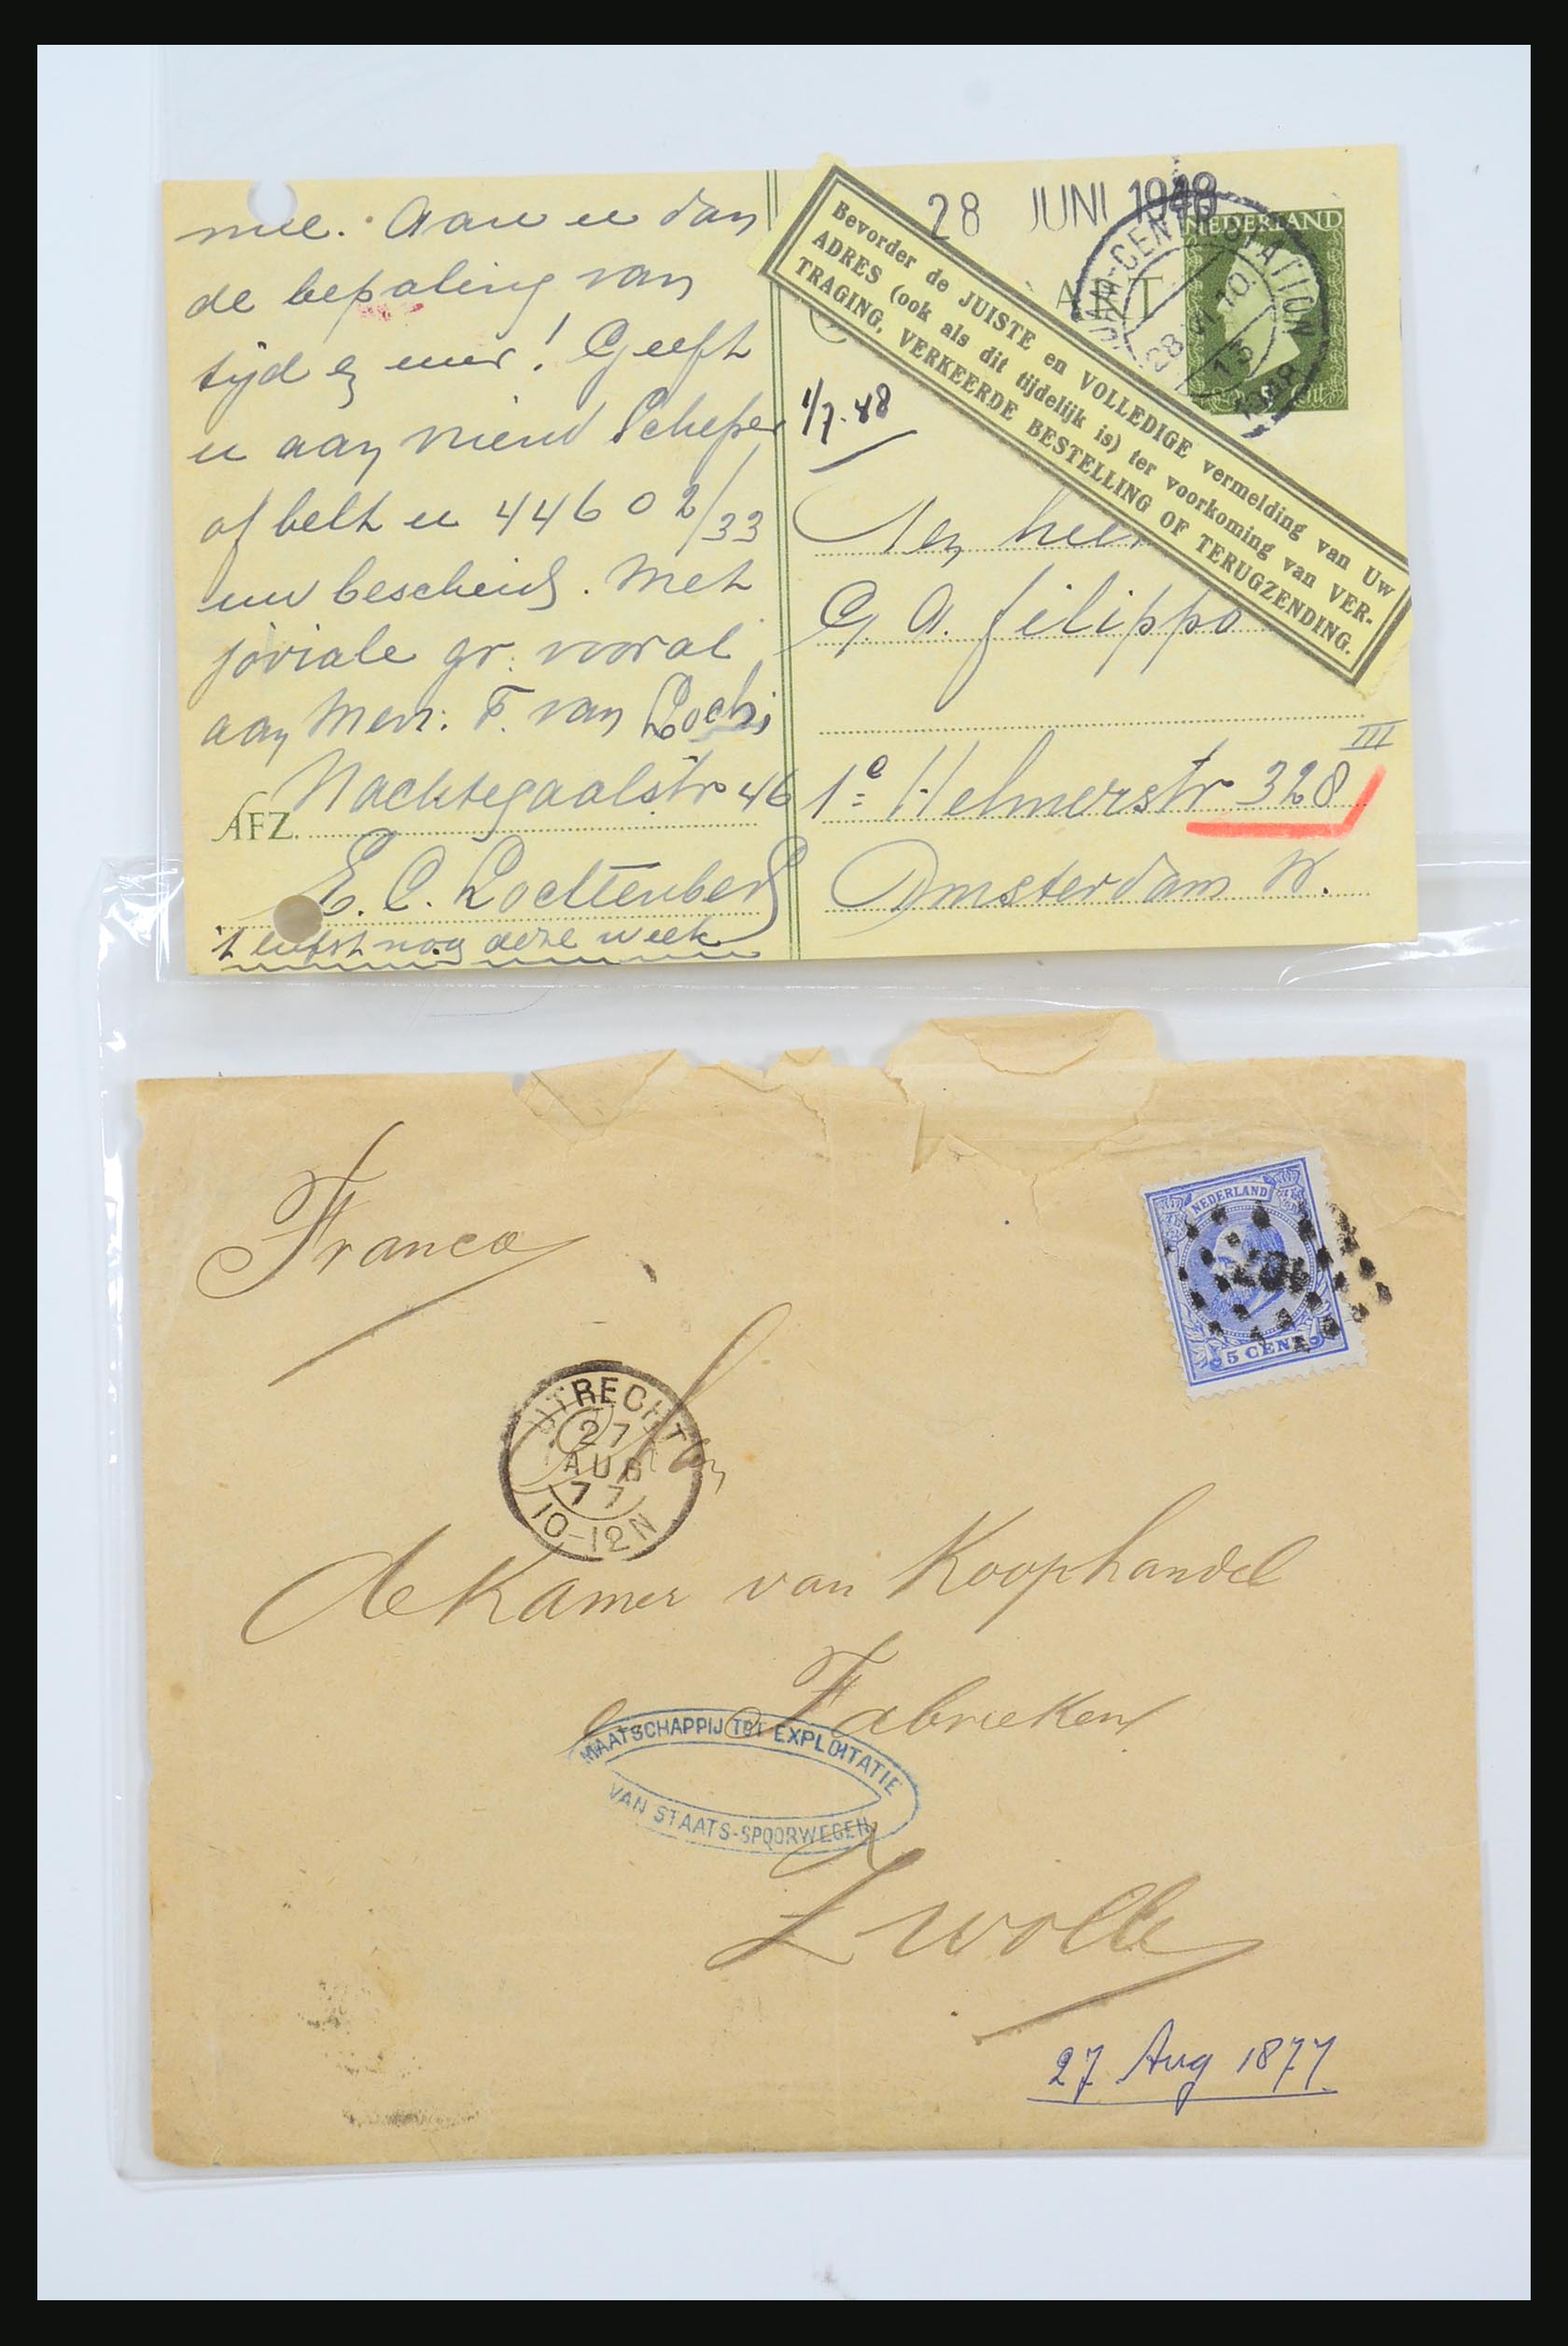 mee. Aan u dan
de bepaling van
tijd en uur! Geeft
u aan vriend Scheper
of belt u 44602/33
uw bescheid. Met
joviale gr. vooral
aan Mevr: F. van
Nachtegaalstr 46
AFZ.
E. C. Lochtenberg
't liefst nog deze week
28 JUNI 1948
NEDERLAND
CENTR. STATION
28 VI 10
13
1948
Bevorder de JUISTE en VOLLEDIGE vermelding van Uw
ADRES (ook als dit tijdelijk is) ter voorkoming van VER-
TRAGING, VERKEERDE BESTELLING OF TERUGZENDING.
1/7-48
Den heer
G. A. Filippo
III
1e Helmerstr 328
Amsterdam W.
Franco
NEDERLAND
5 CENT
UTRECHT
27
AUG
77
10-12N
Aan
de Kamer van Koophandel
en Fabrieken
MAATSCHAPPIJ TOT EXPLOITATIE
VAN STAATS-SPOORWEGEN
Zwolle
27 Aug 1877